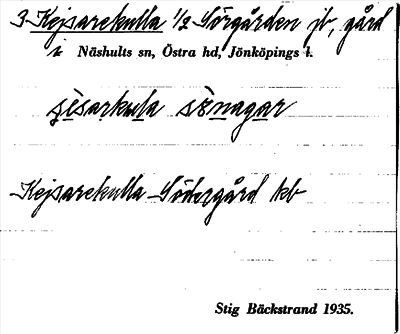 3 Kejsarekulla 1/2 Sörgården jb, gård
i Näshults sn, Östra hd, Jönköpings l.
Kejsarekulla Södergård kb
Stig Bäckstrand 1935.